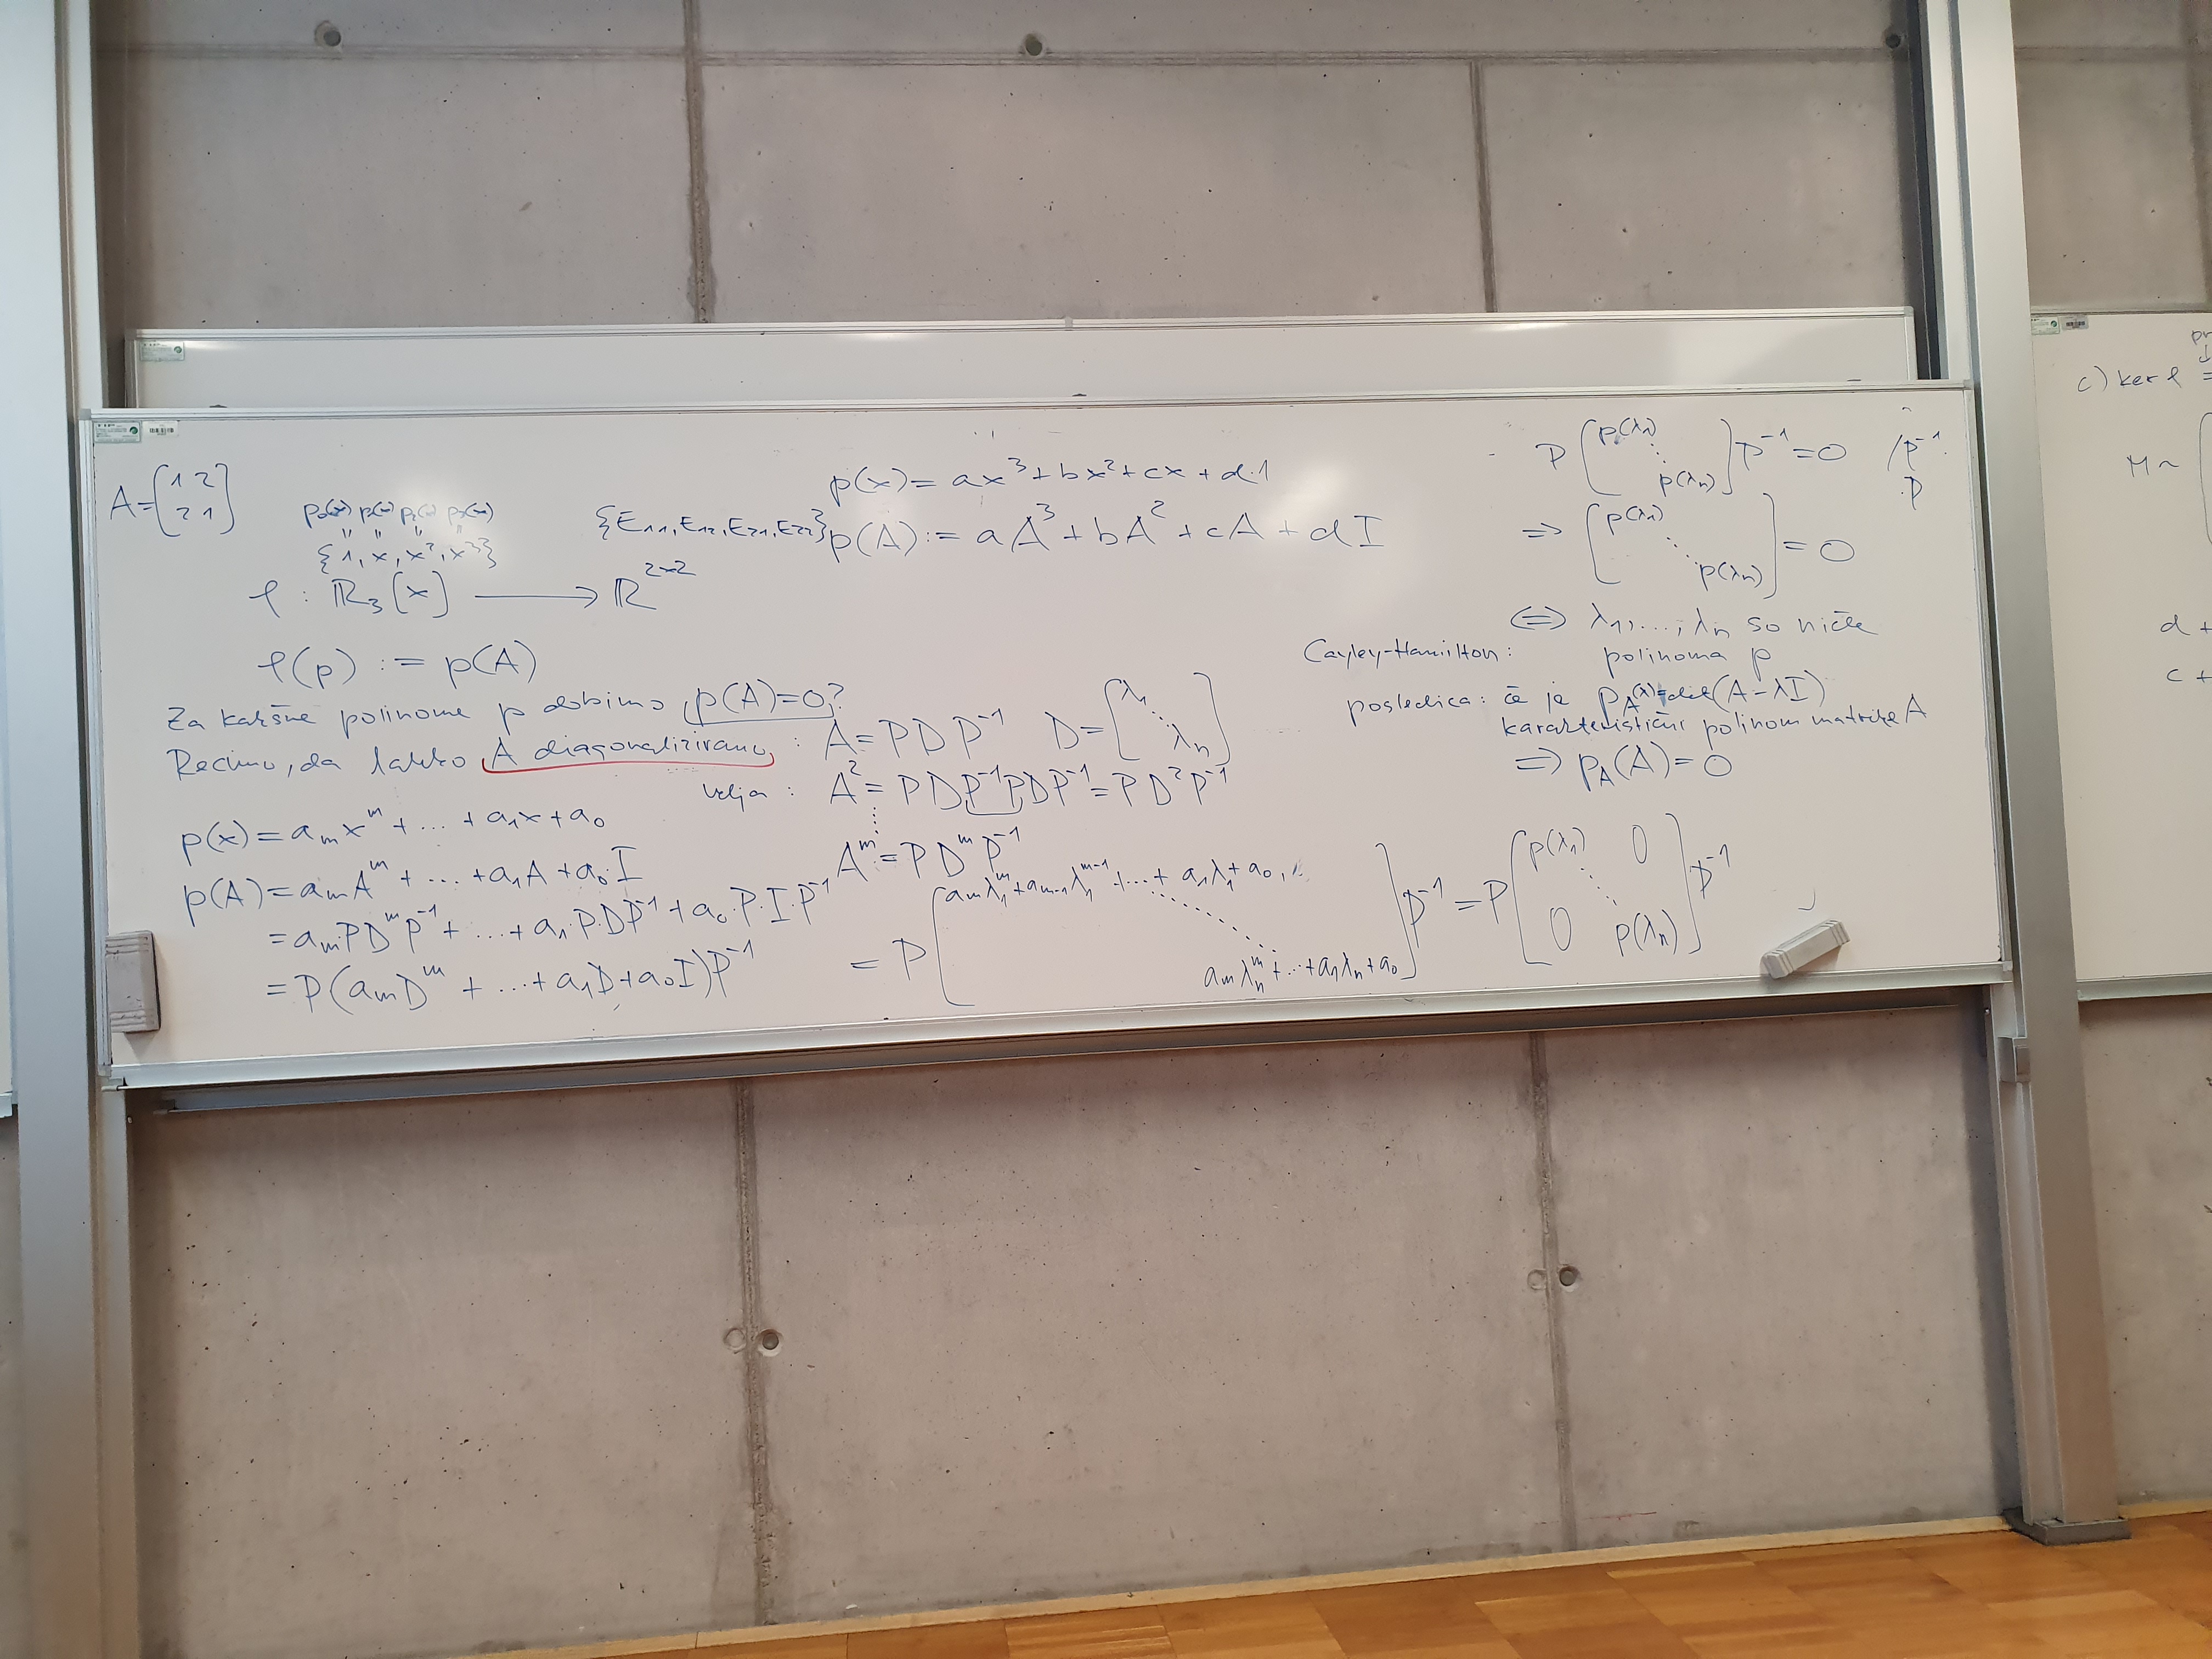 A = [1 2
2 1]
p₀(x) p₁(x) p₂(x) p₃(x)
" " " "
{1, x, x², x³}
{E₁₁, E₁₂, E₂₁, E₂₂}
φ : ℝ₃[x] ⟶ ℝ^{2×2}
φ(p) := p(A)
p(x) = ax³ + bx² + cx + d·1
p(A) := aA³ + bA² + cA + dI
Za kakšne polinome p dobimo p(A)=0?
Recimo, da lahko A diagonaliziramo :
A = PDP⁻¹ D = [λ₁ ⋱ λₙ]
velja : A² = PDP⁻¹PDP⁻¹ = PD²P⁻¹
⋮
Aᵐ = PDᵐP⁻¹
p(x) = aₘxᵐ + ... + a₁x + a₀
p(A) = aₘAᵐ + ... + a₁A + a₀I
= aₘPDᵐP⁻¹ + ... + a₁·P·DP⁻¹ + a₀·P·I·P⁻¹
= P(aₘDᵐ + ... + a₁D + a₀I)P⁻¹
= P [aₘλ₁ᵐ + aₘ₋₁λ₁ᵐ⁻¹ + ... + a₁λ₁ + a₀, ⋱ aₘλₙᵐ + ... + a₁λₙ + a₀] P⁻¹ = P [p(λ₁) 0 ⋱ 0 p(λₙ)] P⁻¹
P [p(λ₁) ⋱ p(λₙ)] P⁻¹ = 0 /P⁻¹·
·P
⇒ [p(λ₁) ⋱ p(λₙ)] = 0
⇔ λ₁, ..., λₙ so ničle
polinoma p
Cayley-Hamilton :
posledica : če je p_A(λ) = det(A − λI)
karakteristični polinom matrike A
⇒ p_A(A) = 0
c) ker φ =
M ~
d +
c +